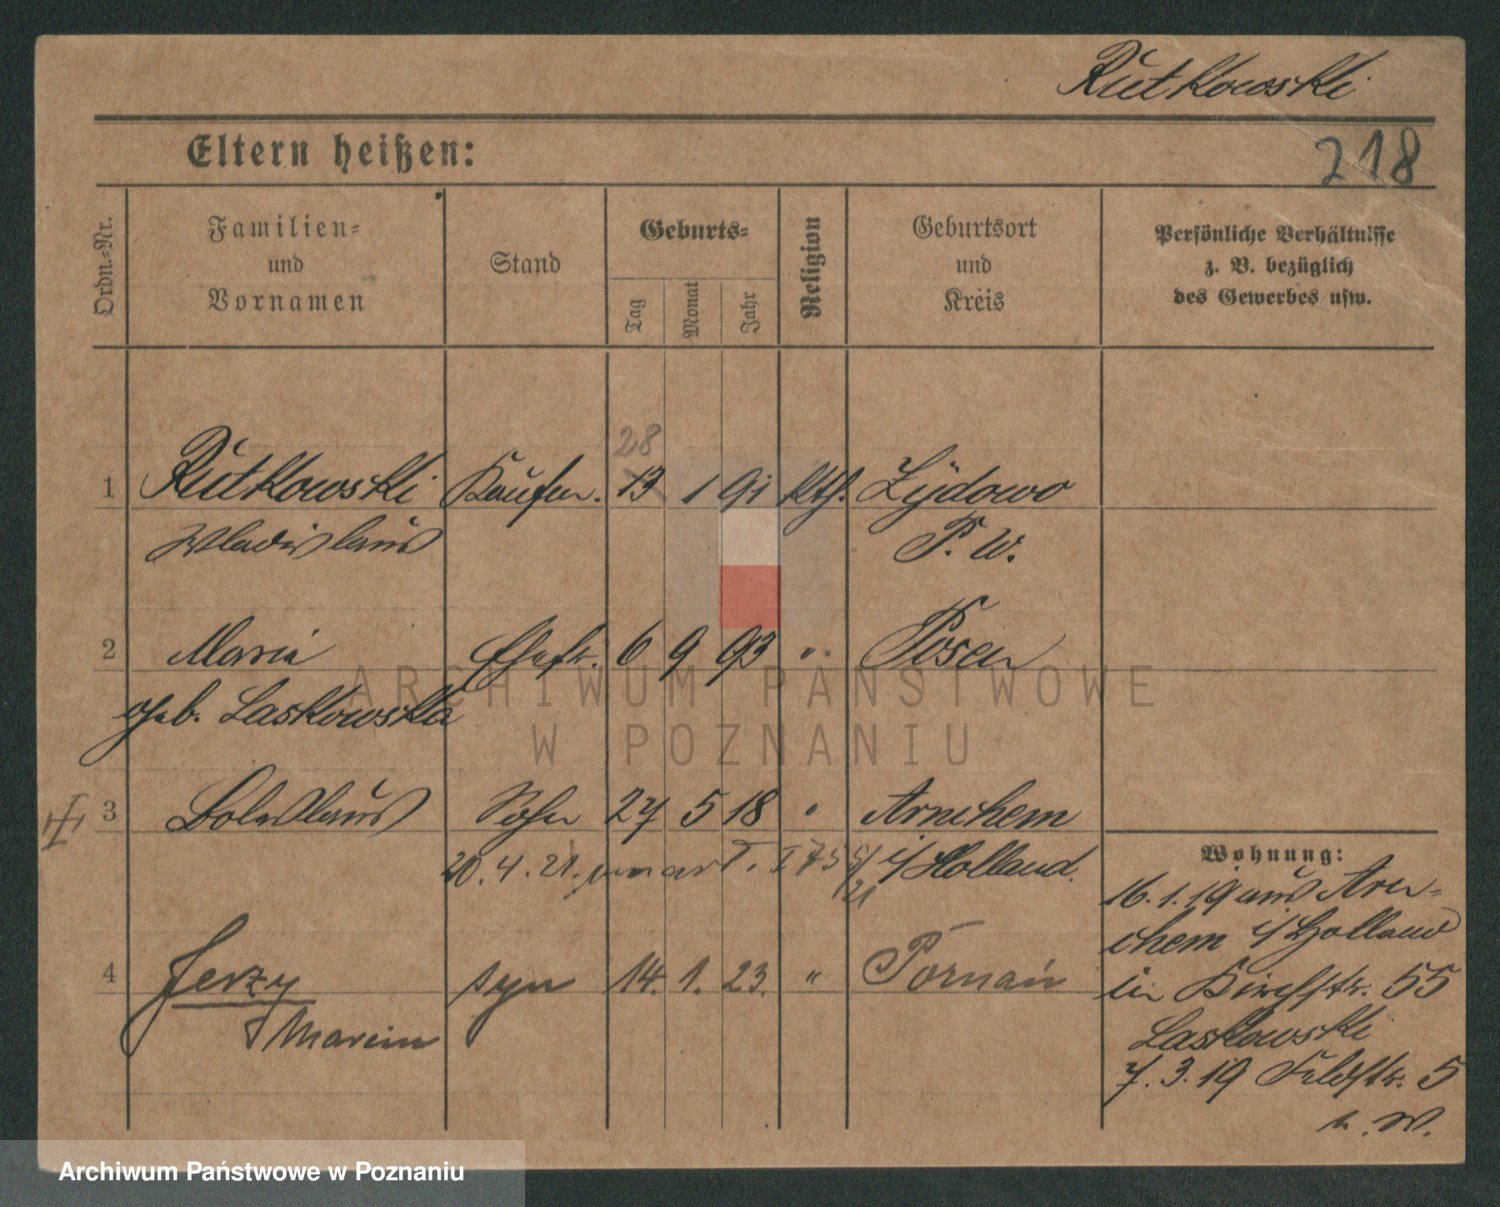 Rutkowski
Eltern heißen:
218
Ordn.-Nr.
Familien-
und
Vornamen
Stand
Geburts-
Tag
Monat
Jahr
Religion
Geburtsort
und
Kreis
Persönliche Verhältnisse
z. B. bezüglich
des Gewerbes usw.
28
1 Rutkowski Kaufm. 13 1 91 kth. Żydowo
Wladislaus P. W.
2 Maria Ehefr. 6 9 93 " Posen
geb. Laskowska
3 Boleslaus Sohn 27 5 18 " Arnehem
i/ Holland.
20. 4. 21. zmarł
4 Jerzy syn 14. 1. 23. " Poznań
Marcin
Wohnung:
16. 1. 19 aus Arn-
ehem i/ Holland
in Kirchstr. 55
Laskowski
7. 3. 19 Feldstr. 5
n. W.
ARCHIWUM PAŃSTWOWE
W POZNANIU
Archiwum Państwowe w Poznaniu